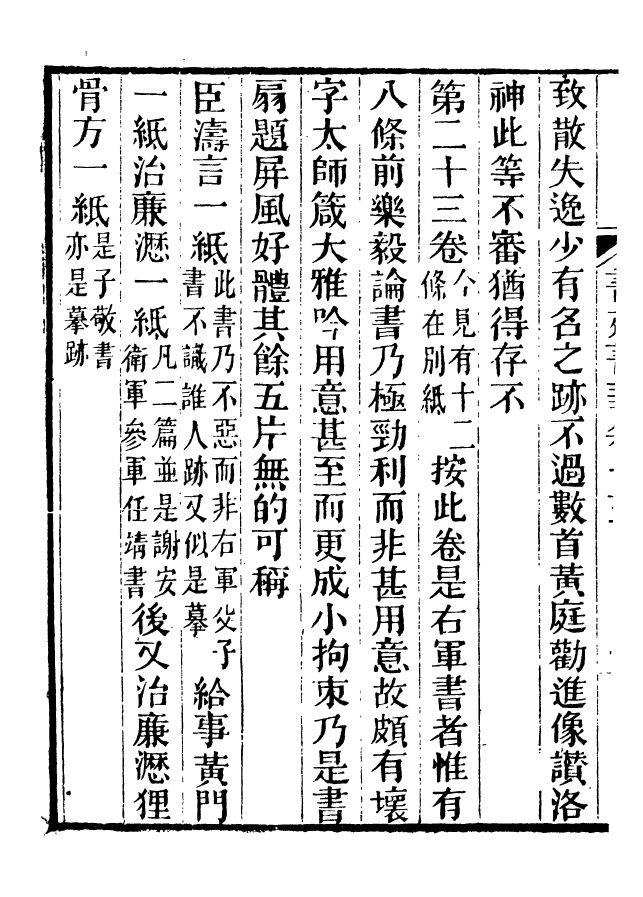 致散失逸少有名之跡不過數首黃庭勸進像讚洛
神此等不審猶得存不
第二十三卷今見有十二條在別紙按此卷是右軍書者惟有
八條前樂毅論書乃極勁利而非甚用意故頗有壞
字太師箴大雅吟用意甚至而更成小拘束乃是書
扇題屏風好體其餘五片無的可稱
臣濤言一紙此書乃不惡而非右軍父子書不識誰人跡又似是摹給事黃門
一紙治廉瀝一紙凡二篇並是謝安衛軍參軍任靖書後又治廉瀝狸
骨方一紙是子敬書亦是摹跡